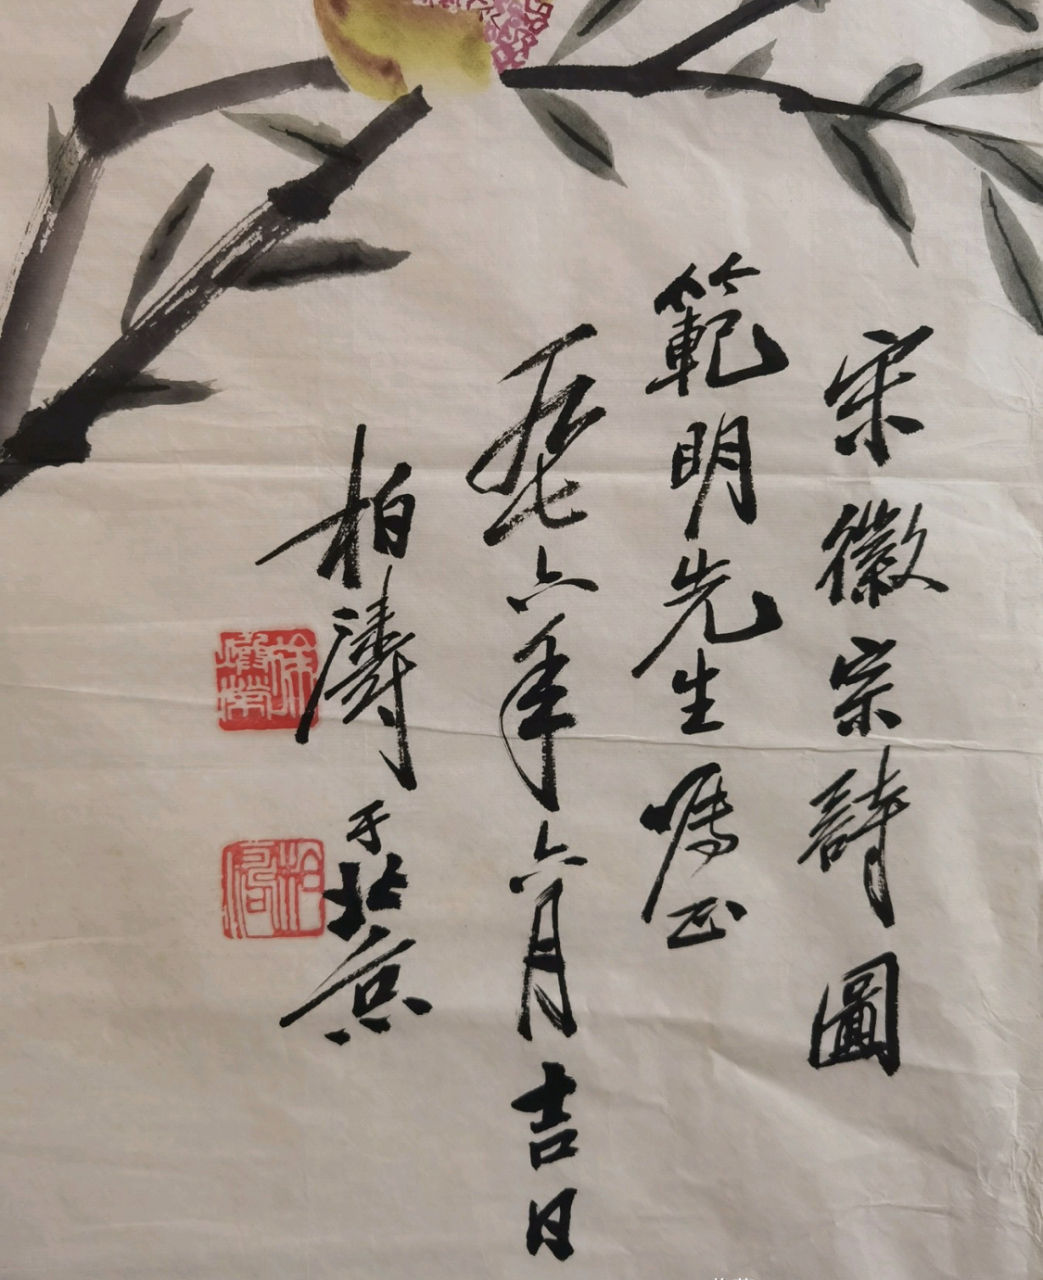 宋徽宗詩圖
範明先生嘱正
一九七六年六月吉日
柏濤于北京